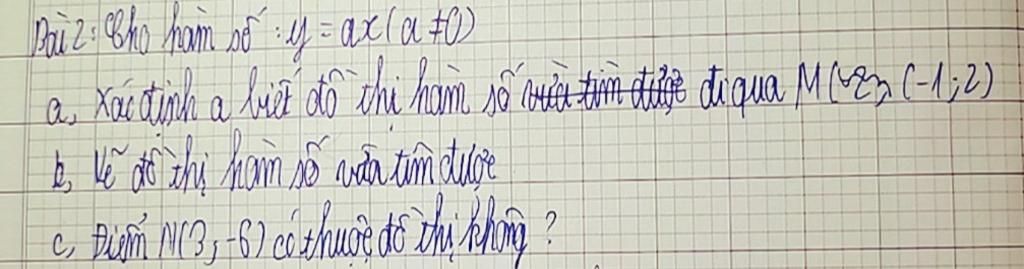 Bài 2: Cho hàm số : y = ax ( a ≠ 0)
a, Xác định a biết đồ thị hàm số vừa tìm được đi qua M (-2; (-1; 2)
b, Vẽ đồ thị hàm số vừa tìm được
c, Điểm N(3; -6) có thuộc đồ thị không ?